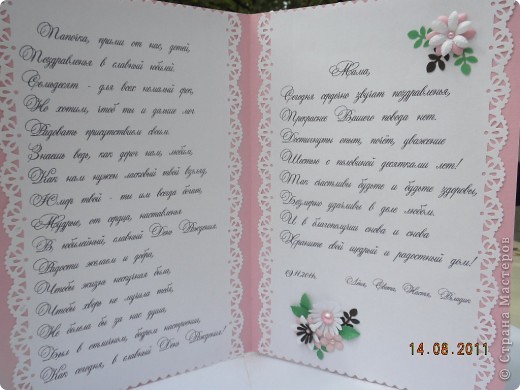 Папочка, прими от нас, детей,
Поздравленья в славный юбилей.
Семьдесят - для всех немалый срок,
Но хотим, чтоб ты и дальше мог
Радовать присутствием своим.
Знаешь ведь, как дорог нам, любим,
Как нам нужны ласковый твой взгляд,
Юмор твой - ты им всегда богат,
Мудрые, от сердца, наставленья
В юбилейный, славный День Рождения.
Радости желаем и добра,
Чтобы жизнь нескучная была,
Чтобы хворь не мучила тебя,
Не болела бы за нас душа,
Был в отличном, бодром настроении,
Как сегодня, в славный День Рождения!
Мама,
Сегодня сердечно звучат поздравленья,
Прекрасней Вашего повода нет.
Достигнуты опыт, почёт, уважение
Шестью с половиной десятками лет!
Так счастливы будьте и будьте здоровы,
Безмерно удачливы в деле любом.
И в благополучии снова и снова
Храните свой щедрый и радостный дом!
Света, Настя,
14.08.2011
© Страна Мастеров